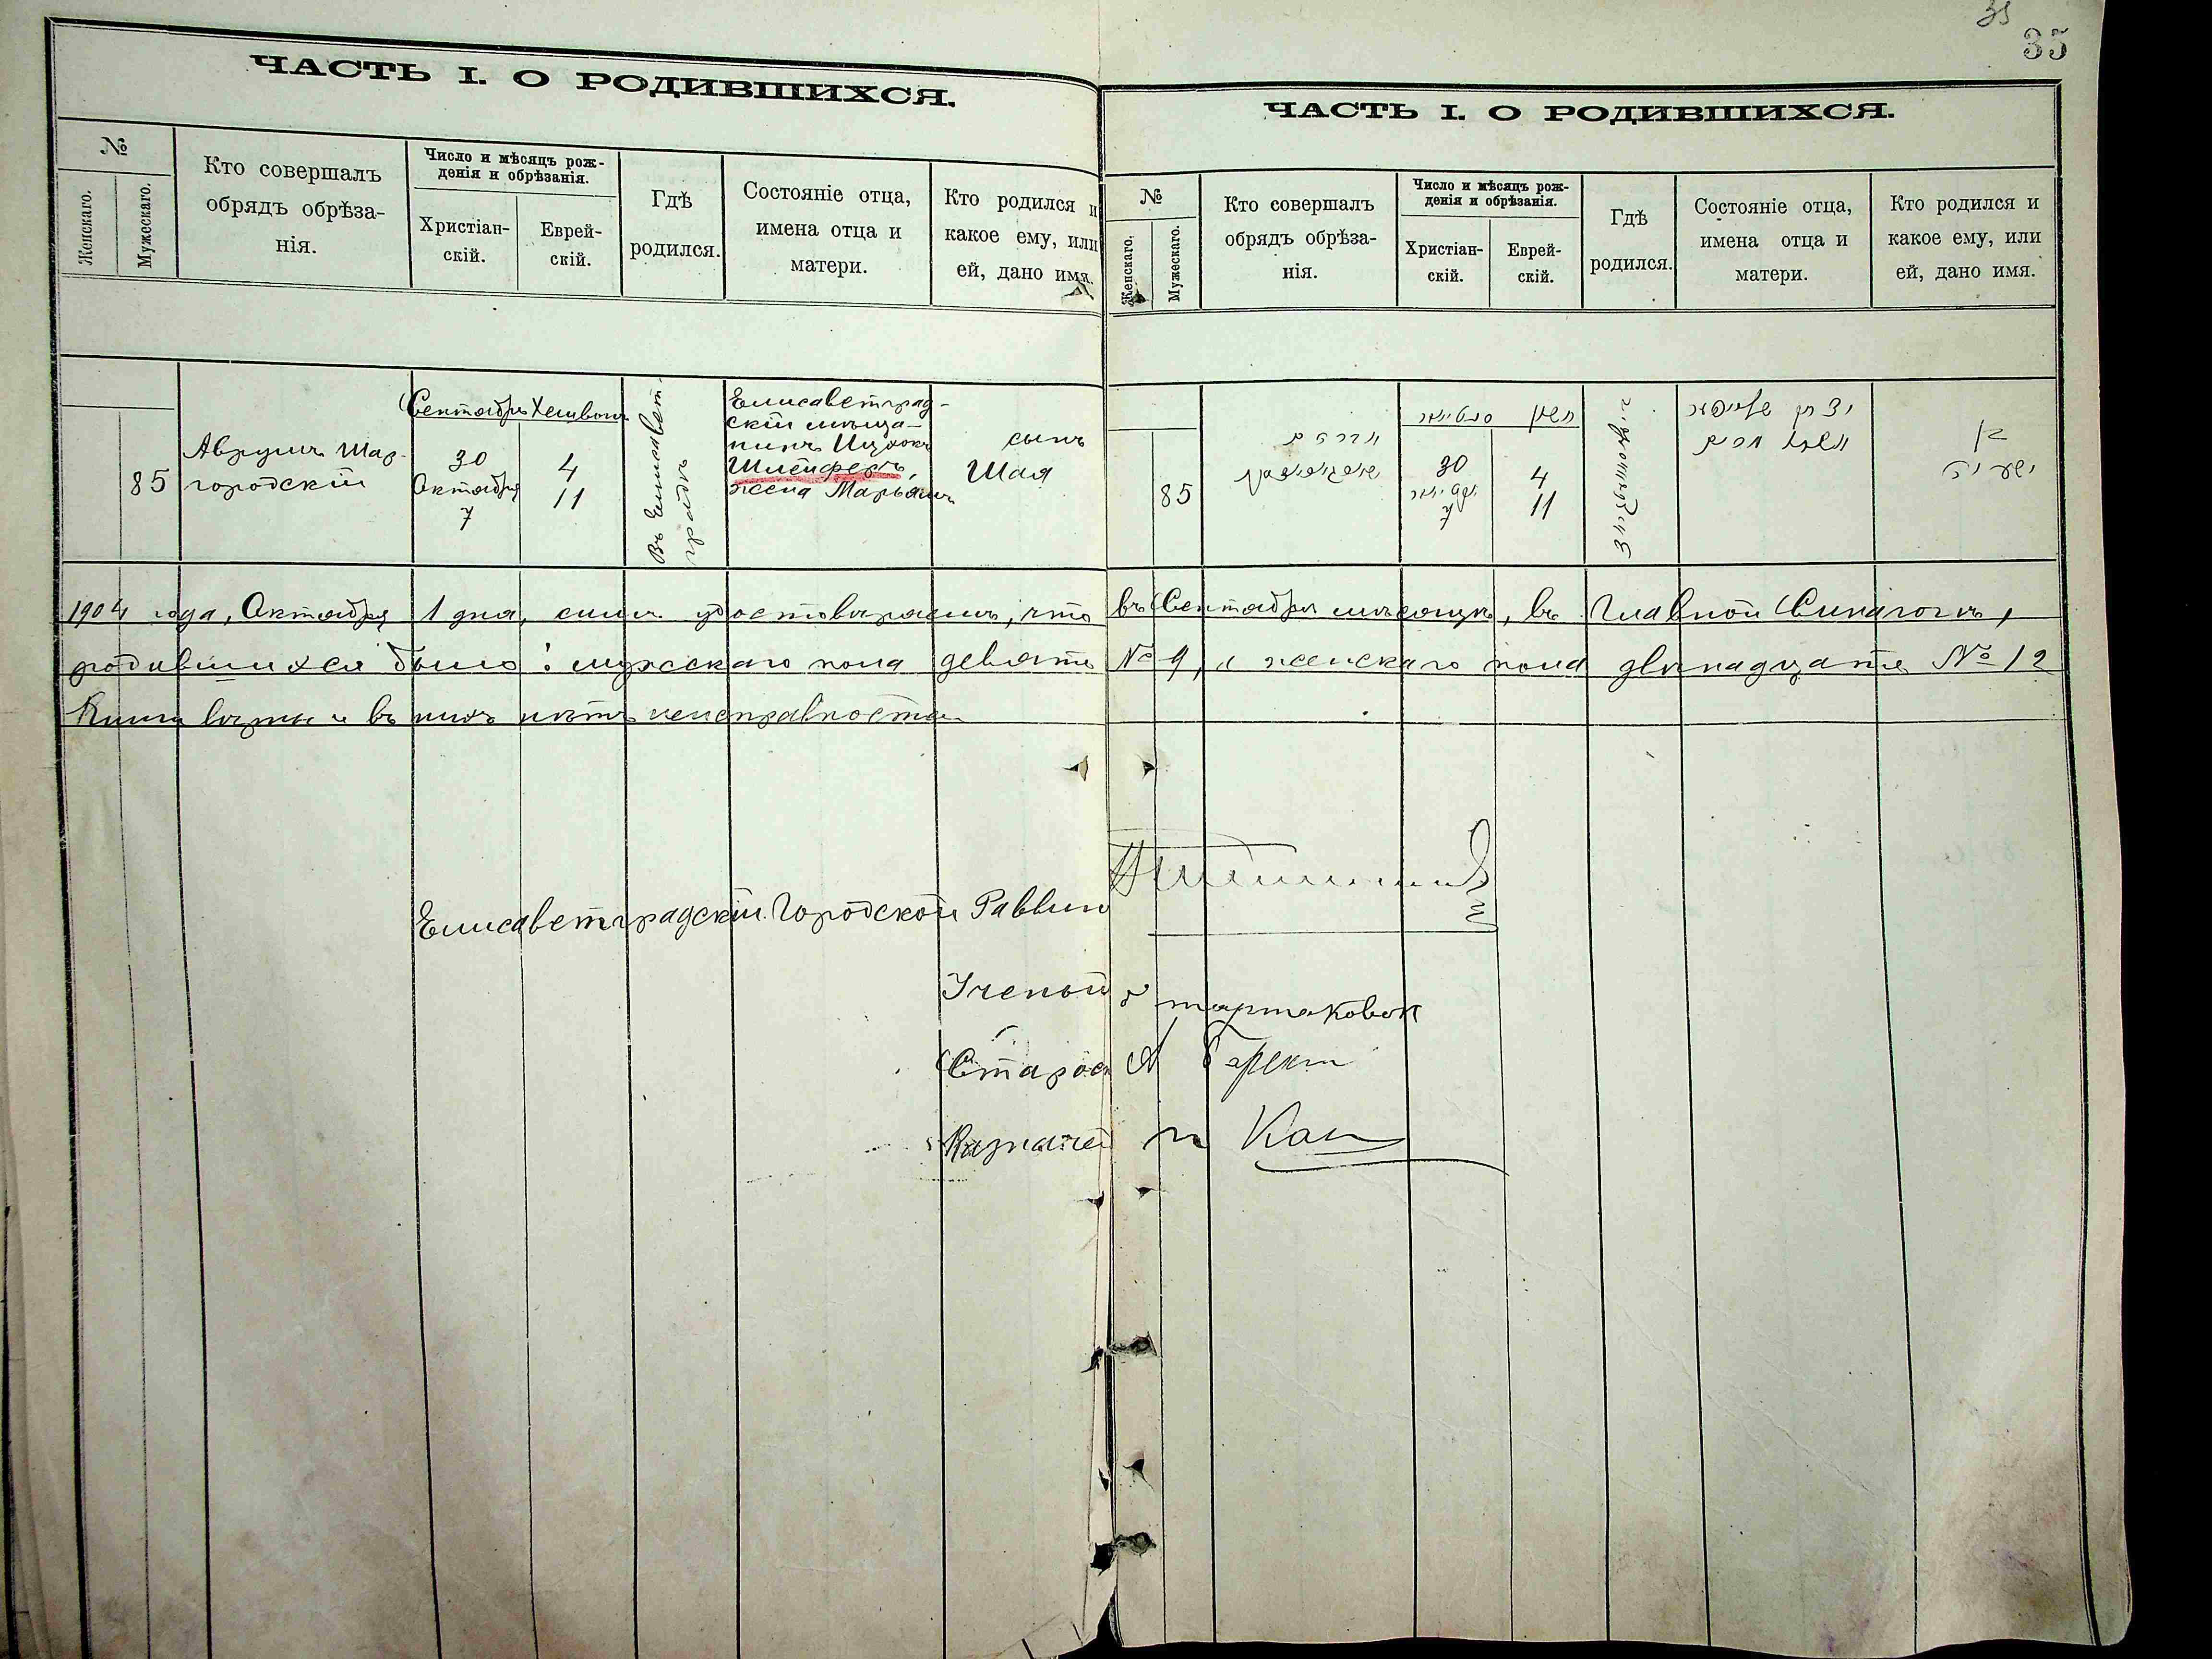 35
35
ЧАСТЬ I. О РОДИВШИХСЯ.
№
Женскаго.
Мужескаго.
Кто совершалъ
обрядъ обрѣза-
нія.
Число и мѣсяцъ рож-
денія и обрѣзанія.
Христіан-
скій.
Еврей-
скій.
Гдѣ
родился.
Состояніе отца,
имена отца и
матери.
Кто родился и
какое ему, или
ей, дано имя.
85
Аврумъ Шар-
городскій
Сентябрь Хешвонъ
30
Октября
7
4
11
Въ Елисавет-
градѣ
Елисаветград-
скій мѣща-
нинъ Ицхокъ
Шлейферъ,
жена Марьямъ
сынъ
Шая
ЧАСТЬ I. О РОДИВШИХСЯ.
№
Женскаго.
Мужескаго.
Кто совершалъ
обрядъ обрѣза-
нія.
Число и мѣсяцъ рож-
денія и обрѣзанія.
Христіан-
скій.
Еврей-
скій.
Гдѣ
родился.
Состояніе отца,
имена отца и
матери.
Кто родился и
какое ему, или
ей, дано имя.
85
אברהם
30
7
חשון
4
11
יצחק
מרים
בן
ישעי'
1904 года, Октября 1 дня, симъ удостовѣряемъ, что въ Сентябрѣ мѣсяцѣ, въ Главной Синагогѣ,
родившихся было: мужскаго пола девять № 9, и женскаго пола двѣнадцать № 12
Книги вѣрны и въ нихъ нѣтъ неисправностей
Елисаветградскій Городской Раввинъ
Ученый
Староста
Казначей Кан